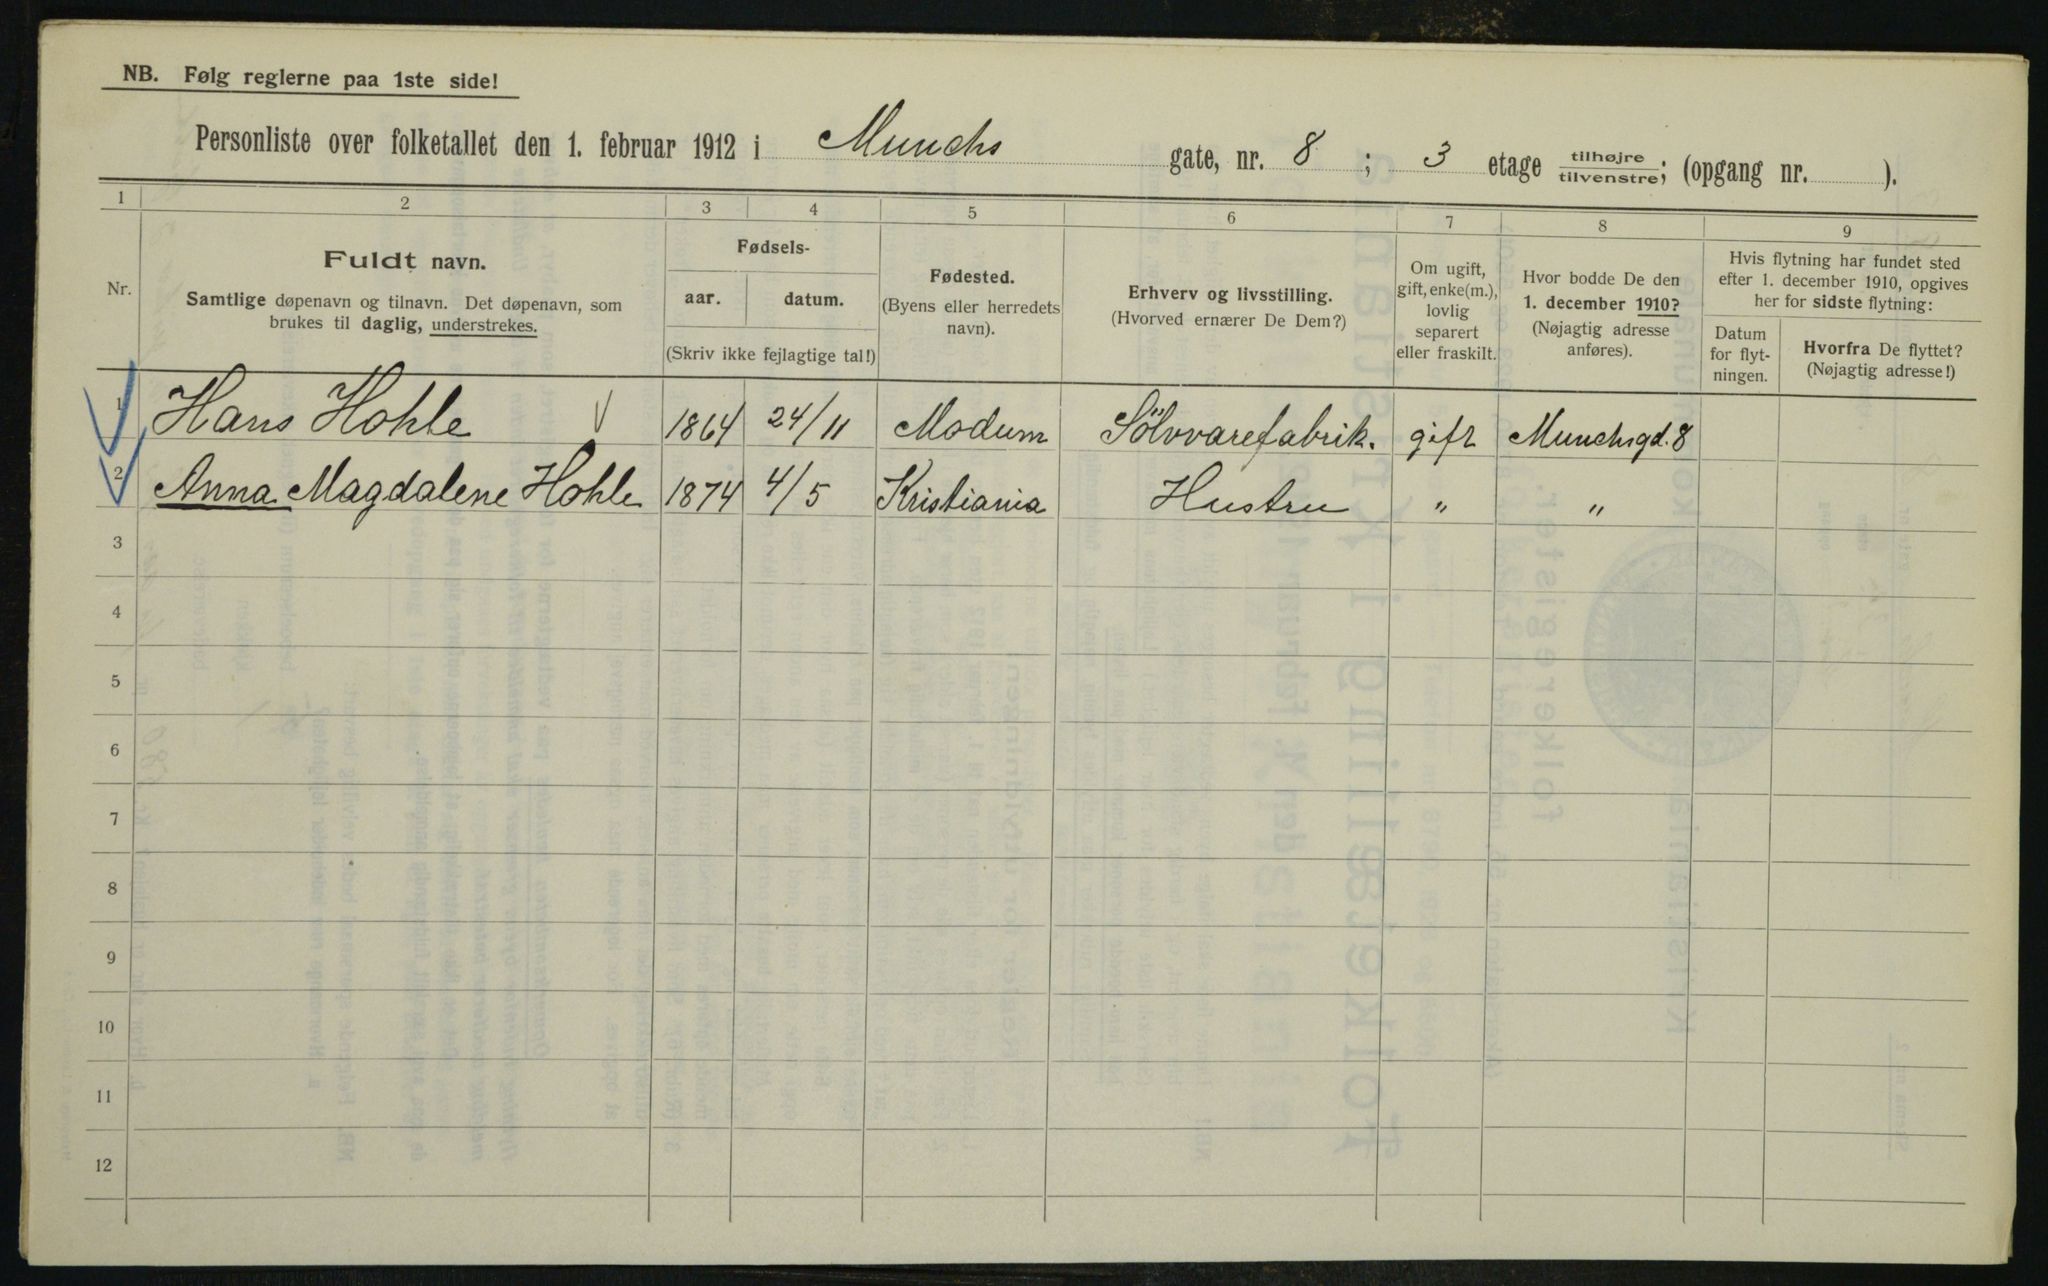 NB. Følg reglerne paa 1ste side!
Personliste over folketallet den 1. februar 1912 i Munchs gate, nr. 8 ; 3 etage tilhøjre/tilvenstre; (opgang nr. ).
1 2 3 4 5 6 7 8 9
Nr.
Fuldt navn.
Samtlige døpenavn og tilnavn. Det døpenavn, som
brukes til daglig, understrekes.
Fødsels-
aar. datum.
(Skriv ikke fejlagtige tal!)
Fødested.
(Byens eller herredets
navn).
Erhverv og livsstilling.
(Hvorved ernærer De Dem?)
Om ugift,
gift, enke(m.),
lovlig
separert
eller fraskilt.
Hvor bodde De den
1. december 1910?
(Nøjagtig adresse
anføres).
Hvis flytning har fundet sted
efter 1. december 1910, opgives
her for sidste flytning:
Datum
for flyt-
ningen.
Hvorfra De flyttet?
(Nøjagtig adresse!)
1 Hans Hohle 1864 24/11 Modum Sölvvarefabrik. gift Munchsgd. 8
2 Anna Magdalene Hohle 1874 4/5 Kristiania Hustru " "
3
4
5
6
7
8
9
10
11
12